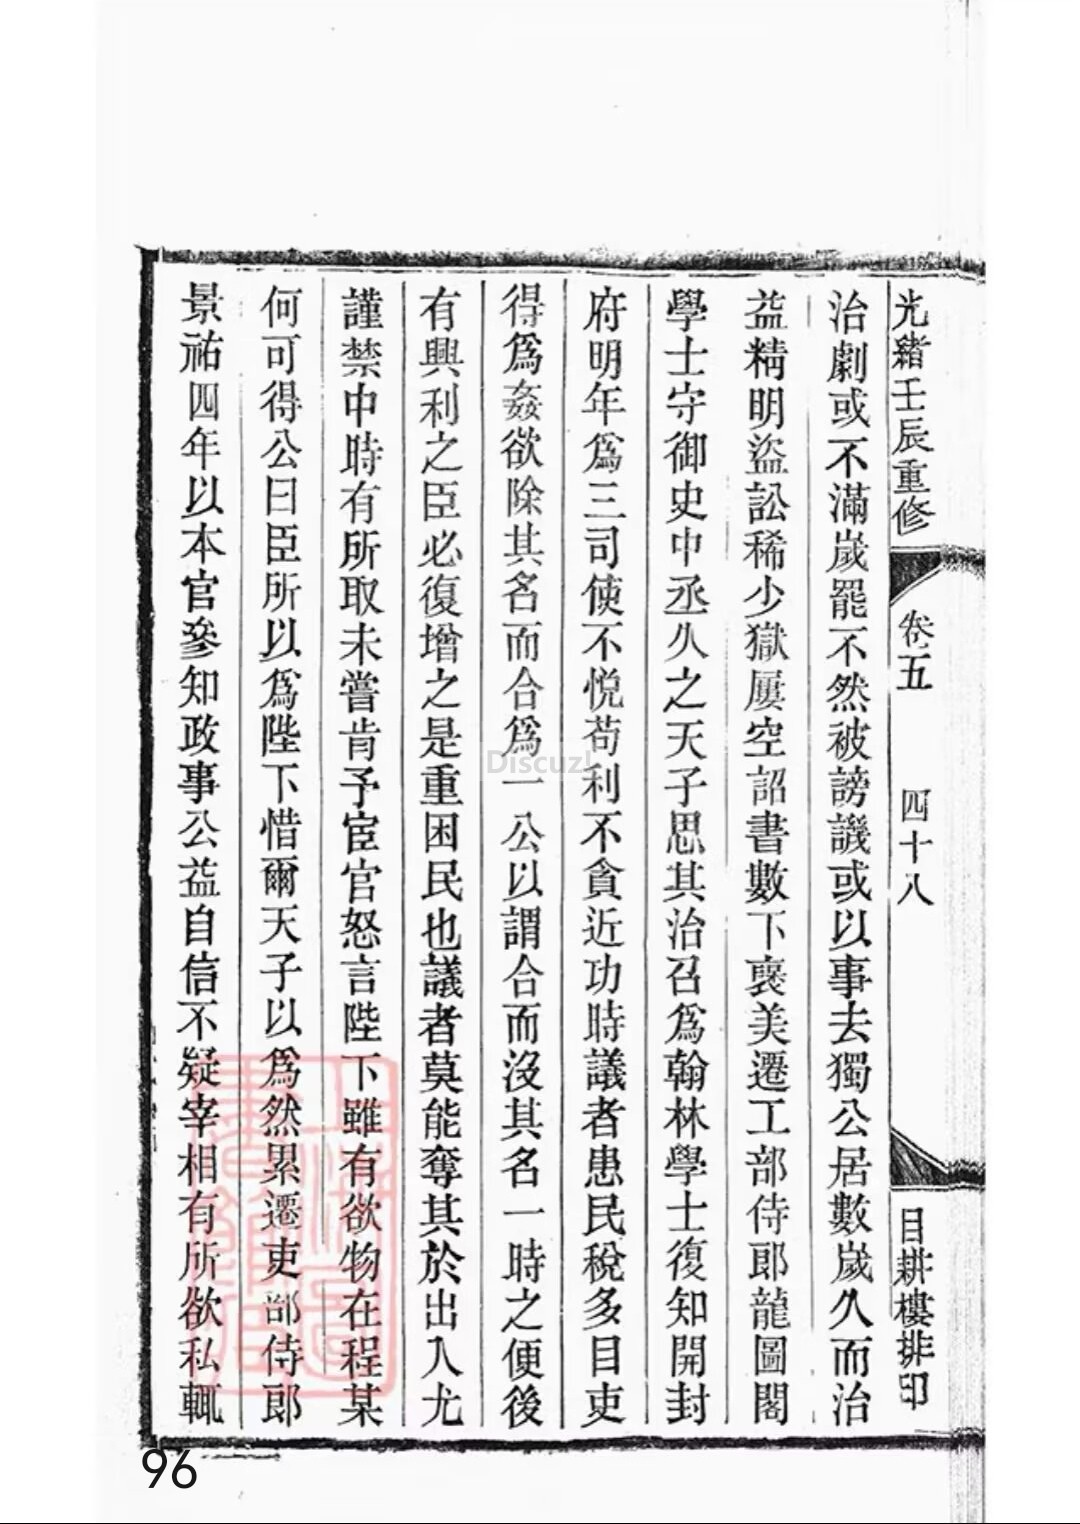 光緒壬辰重修
卷五
四十八
目耕樓排印
治劇或不滿嵗罷不然被謗譏或以事去獨公居數嵗久而治
益精明盜訟稀少獄屢空詔書數下襃美遷工部侍郎龍圖閣
學士守御史中丞久之天子思其治召爲翰林學士復知開封
府明年爲三司使不悅苟利不貪近功時議者患民稅多目吏
得爲姦欲除其名而合爲一公以謂合而沒其名一時之便後
有興利之臣必復增之是重困民也議者莫能奪其於出入尤
謹禁中時有所取未嘗肯予宦官怒言陛下雖有欲物在程某
何可得公曰臣所以爲陛下惜爾天子以爲然累遷吏部侍郎
景祐四年以本官參知政事公益自信不疑宰相有所欲私輒
Discuz!
96